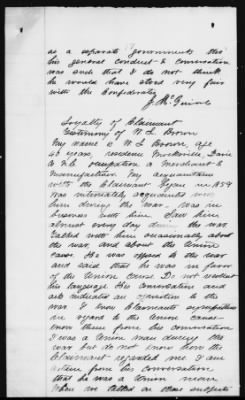 as a separate government then
his general conduct & conversation
was such that I do not think
he would have stood very fair
with the Confederates
J. McGuire
Loyalty of Claimant
Testimony of W L Brown
My name is W L Brown, age
years, residence Mocksville Davie
Co N.C. occupation a merchant &
manufacturer. My acquaintance
with the Claimant began in 1859
was intimately acquainted with
him during the war, was in
business with him. Saw him
almost every day during the war
talked with him occasionally about
the war, and about the Union
cause. He was opposed to the war
and said that he was in favor
of the Union Cause. Do not recollect
his language. His conversation and
acts indicated an opposition to the
war. I know Claimants sympathies
in regard to the Union cause
know them from his conversation
I was a Union man during the
war but do not know how the
Claimant regarded me. I am
from his conversation
that he was a Union man
When we talked on these subjects